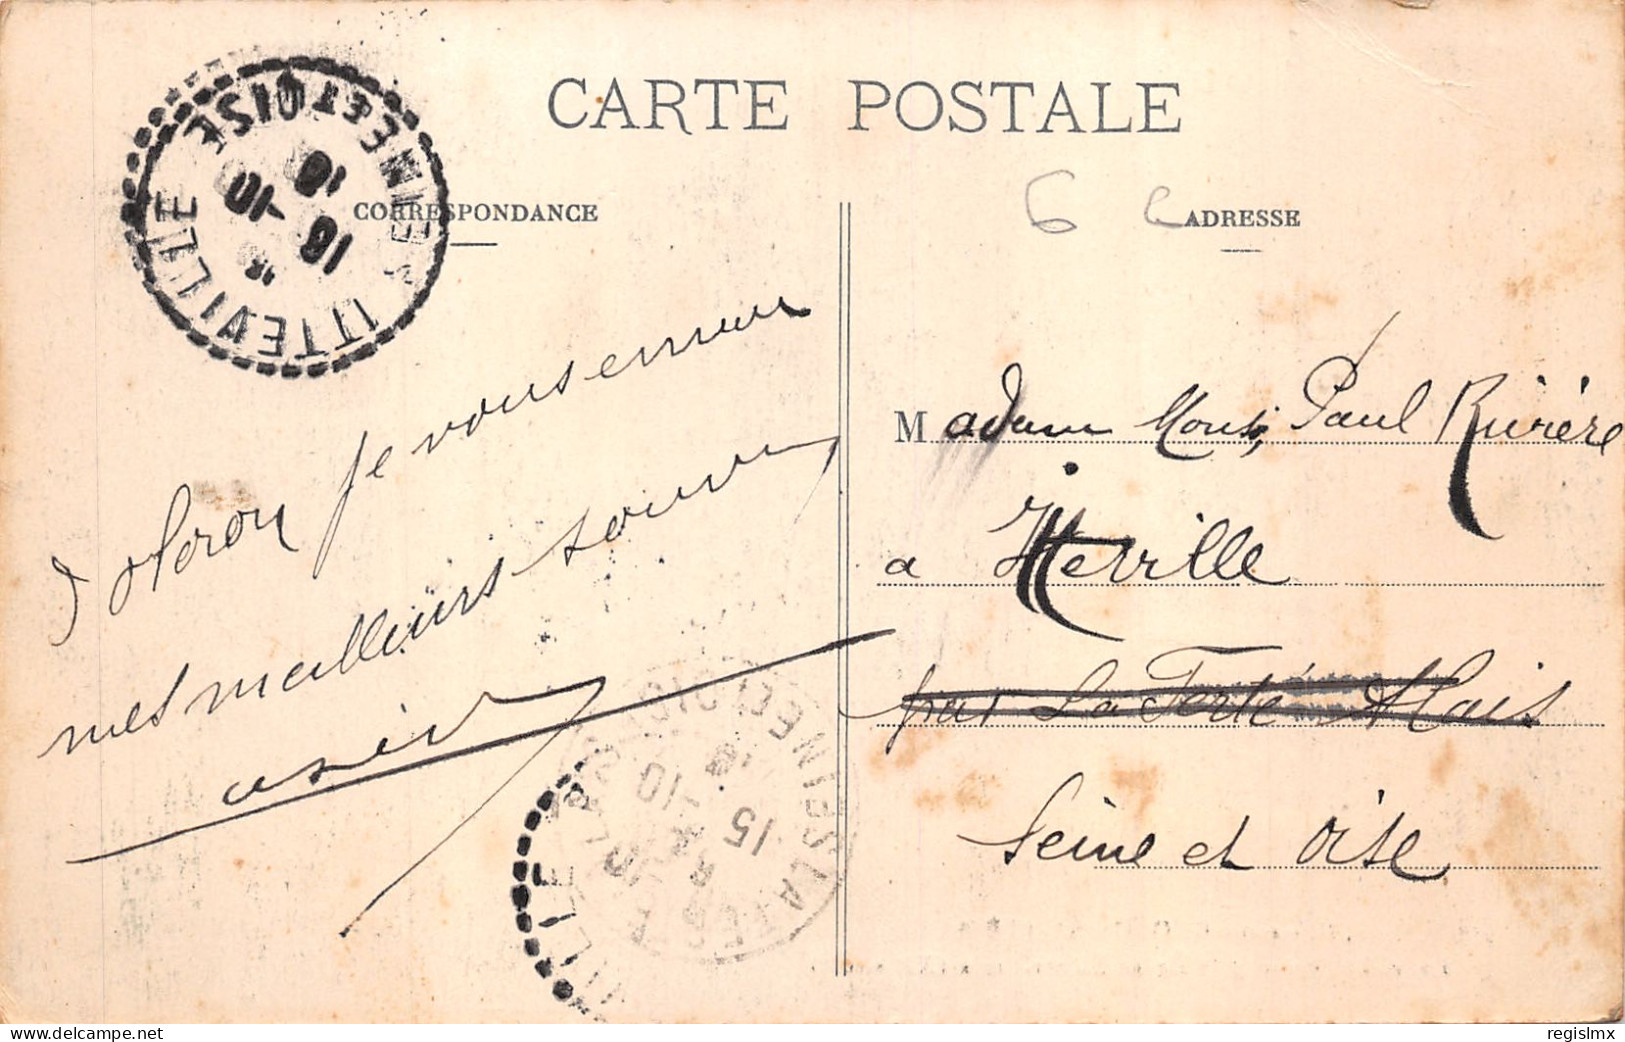 CARTE POSTALE
CORRESPONDANCE
ADRESSE
ITTEVILLE
SEINE ET OISE
16 -10
10
d'oloron je vous envoie
mes meilleurs souvenirs
Madame Mons, Paul Rivière
a Itteville
par La Ferté Alais
Seine et Oise
15 -10
SEINE ET OISE
regislmx